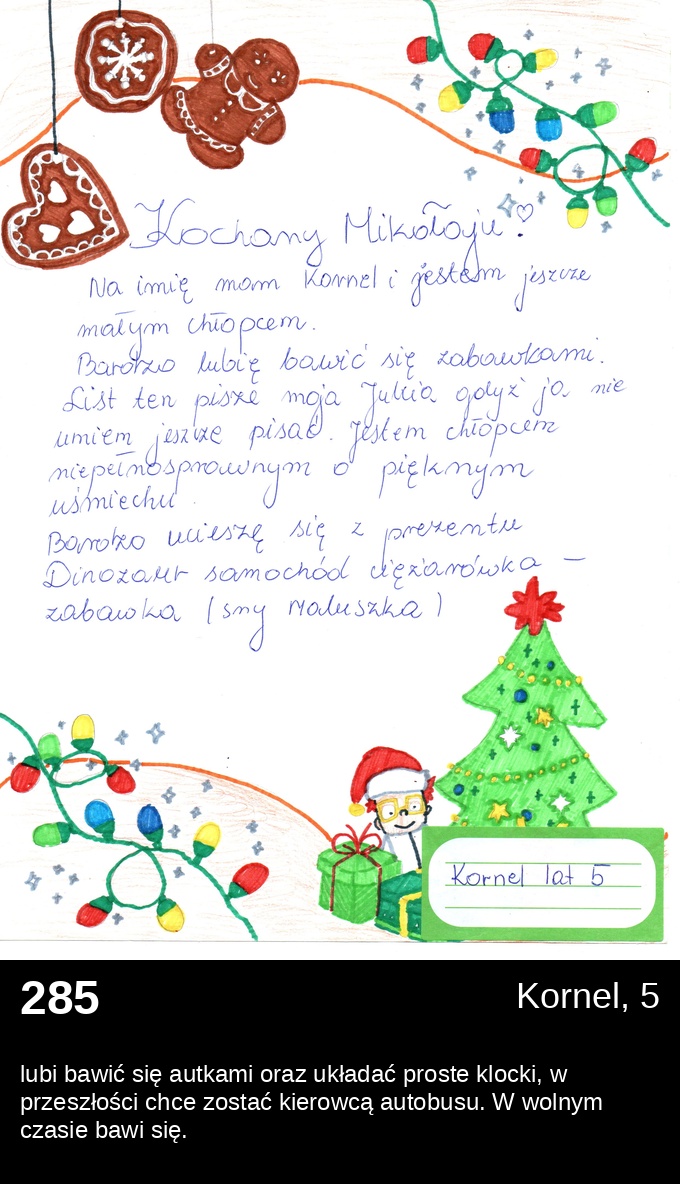 Kochany Mikołaju!
Na imię mam Kornel i jestem jeszcze
małym chłopcem.
Bardzo lubię bawić się zabawkami.
List ten pisze moja Julcia gdyż ja nie
umiem jeszcze pisać. Jestem chłopcem
niepełnosprawnym o pięknym
uśmiechu.
Bardzo ucieszę się z prezentu
Dinozaur samochód ciężarówka –
zabawka (sny Maluszka)
Kornel lat 5
285
Kornel, 5
lubi bawić się autkami oraz układać proste klocki, w
przeszłości chce zostać kierowcą autobusu. W wolnym
czasie bawi się.